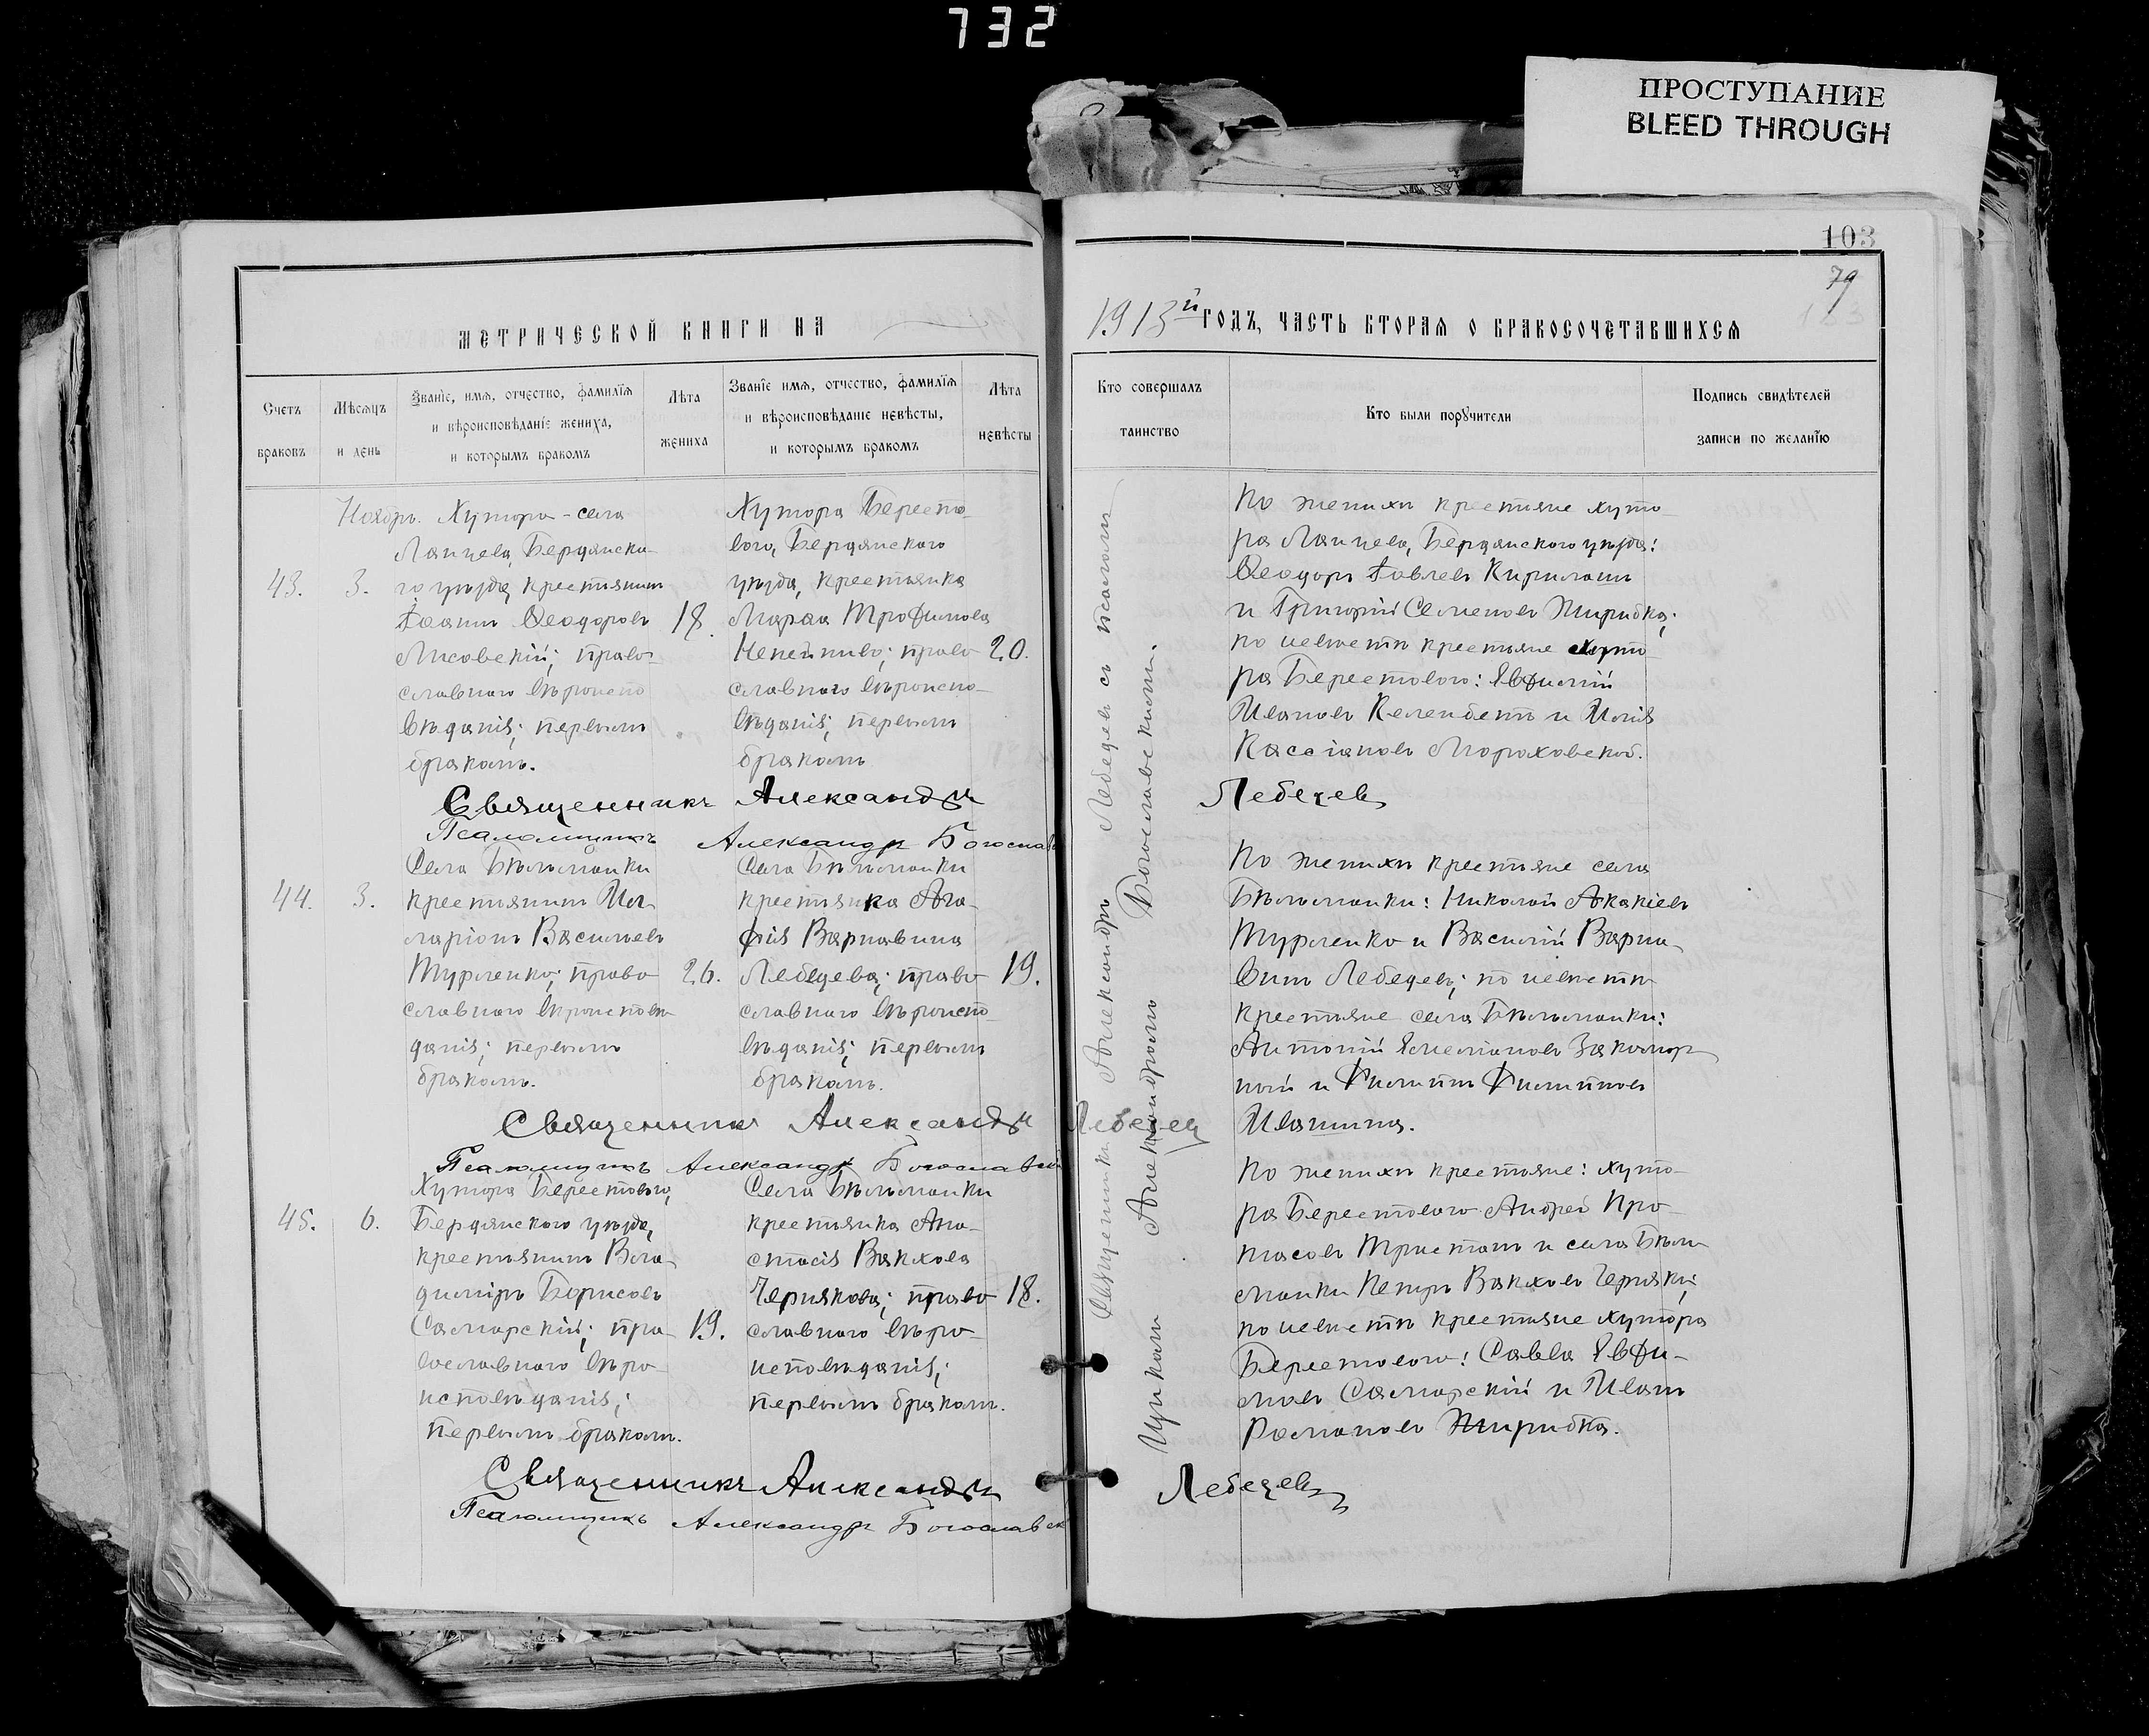 732
ПРОСТУПАНИЕ
BLEED THROUGH
103
79
МЕТРИЧЕСКОЙ КНИГИ НА
1913й ГОДЪ, ЧАСТЬ ВТОРАЯ О БРАКОСОЧЕТАВШИХСЯ
Счетъ браковъ
Мѣсяцъ и день
Званіе, имя, отчество, фамилїя
и вѣроисповѣданіе жениха,
и которымъ бракомъ
Лѣта жениха
Званіе имя, отчество, фамилія
и вѣроисповѣданіе невѣсты,
и которымъ бракомъ
Лѣта невѣсты
Кто совершалъ таинство
Кто были поручители
Подпись свидѣтелей записи по желанїю
43.
Ноябрь
3.
Хутора-села
Ланцева, Бердянска-
го уѣзда, крестьянинъ
Іоаннъ Ѳеодоровъ
Лисовскій; право-
славнаго вѣроиспо
вѣданія; первымъ
бракомъ.
18.
Хутора Бересто-
вого, Бердянского
уѣзда, крестьянка
Марѳа Трофимова
Непейпиво; право
славнаго вѣроиспо-
вѣданія; первымъ
бракомъ
20.
По женихѣ крестьяне хуто-
ра Ланцева, Бердянского уѣзда:
Ѳеодоръ Іовлевъ Кирилашъ
и Григорій Семеновъ Жирибка;
по невѣстѣ крестьяне хуто-
ра Берестового: Евфимій
Ивановъ Келембетъ и Илія
Кассіановъ Мораховской.
Священникъ Александръ Лебедевъ
Псаломщикъ Александръ Богослав
44.
3.
Села Бѣльманки
крестьянинъ Ил-
ларіонъ Васильевъ
Турленко; право
славнаго вѣроисповѣ-
данія; первымъ
бракомъ.
26.
Села Бѣльманки
крестьянка Ага-
фія Варнавина
Лебедева; право
славнаго вѣроиспо-
вѣданія; первымъ
бракомъ.
19.
По женихѣ крестьяне села
Бѣльманки: Николай Акакіевъ
Турленко и Василій Варна-
винъ Лебедевъ; по невѣстѣ
крестьяне села Бѣльманки:
Антоній Емеліановъ Закомор-
ной и Филиппъ Филипповъ
Ивашина.
Священникъ Александръ Лебедев
Псаломщикъ Александръ Богославск
45.
6.
Хутора Берестового,
Бердянского уѣзда,
крестьянинъ Вла-
димиръ Борисовъ
Самарскій; пра-
вославнаго вѣро-
исповѣданія;
первымъ бракомъ.
19.
Села Бѣльманки
крестьянка Ана-
стасія Вакхова
Чернякова; право
славнаго вѣро-
исповѣданія;
первымъ бракомъ.
18.
По женихѣ крестьяне: хуто-
ра Берестового Андрей Про-
тасовъ Тристанъ и села Бѣль-
манки Петръ Вакховъ Чернякъ;
по невѣстѣ крестьяне хутора
Берестового: Савва Евфи-
мовъ Самарскій и Иванъ
Романовъ Жирибка.
Священникъ Александръ Лебедевъ
Псаломщикъ Александръ Богославск
Священникъ Александръ Лебедевъ съ псалом-
щикомъ Александромъ Богославскимъ.